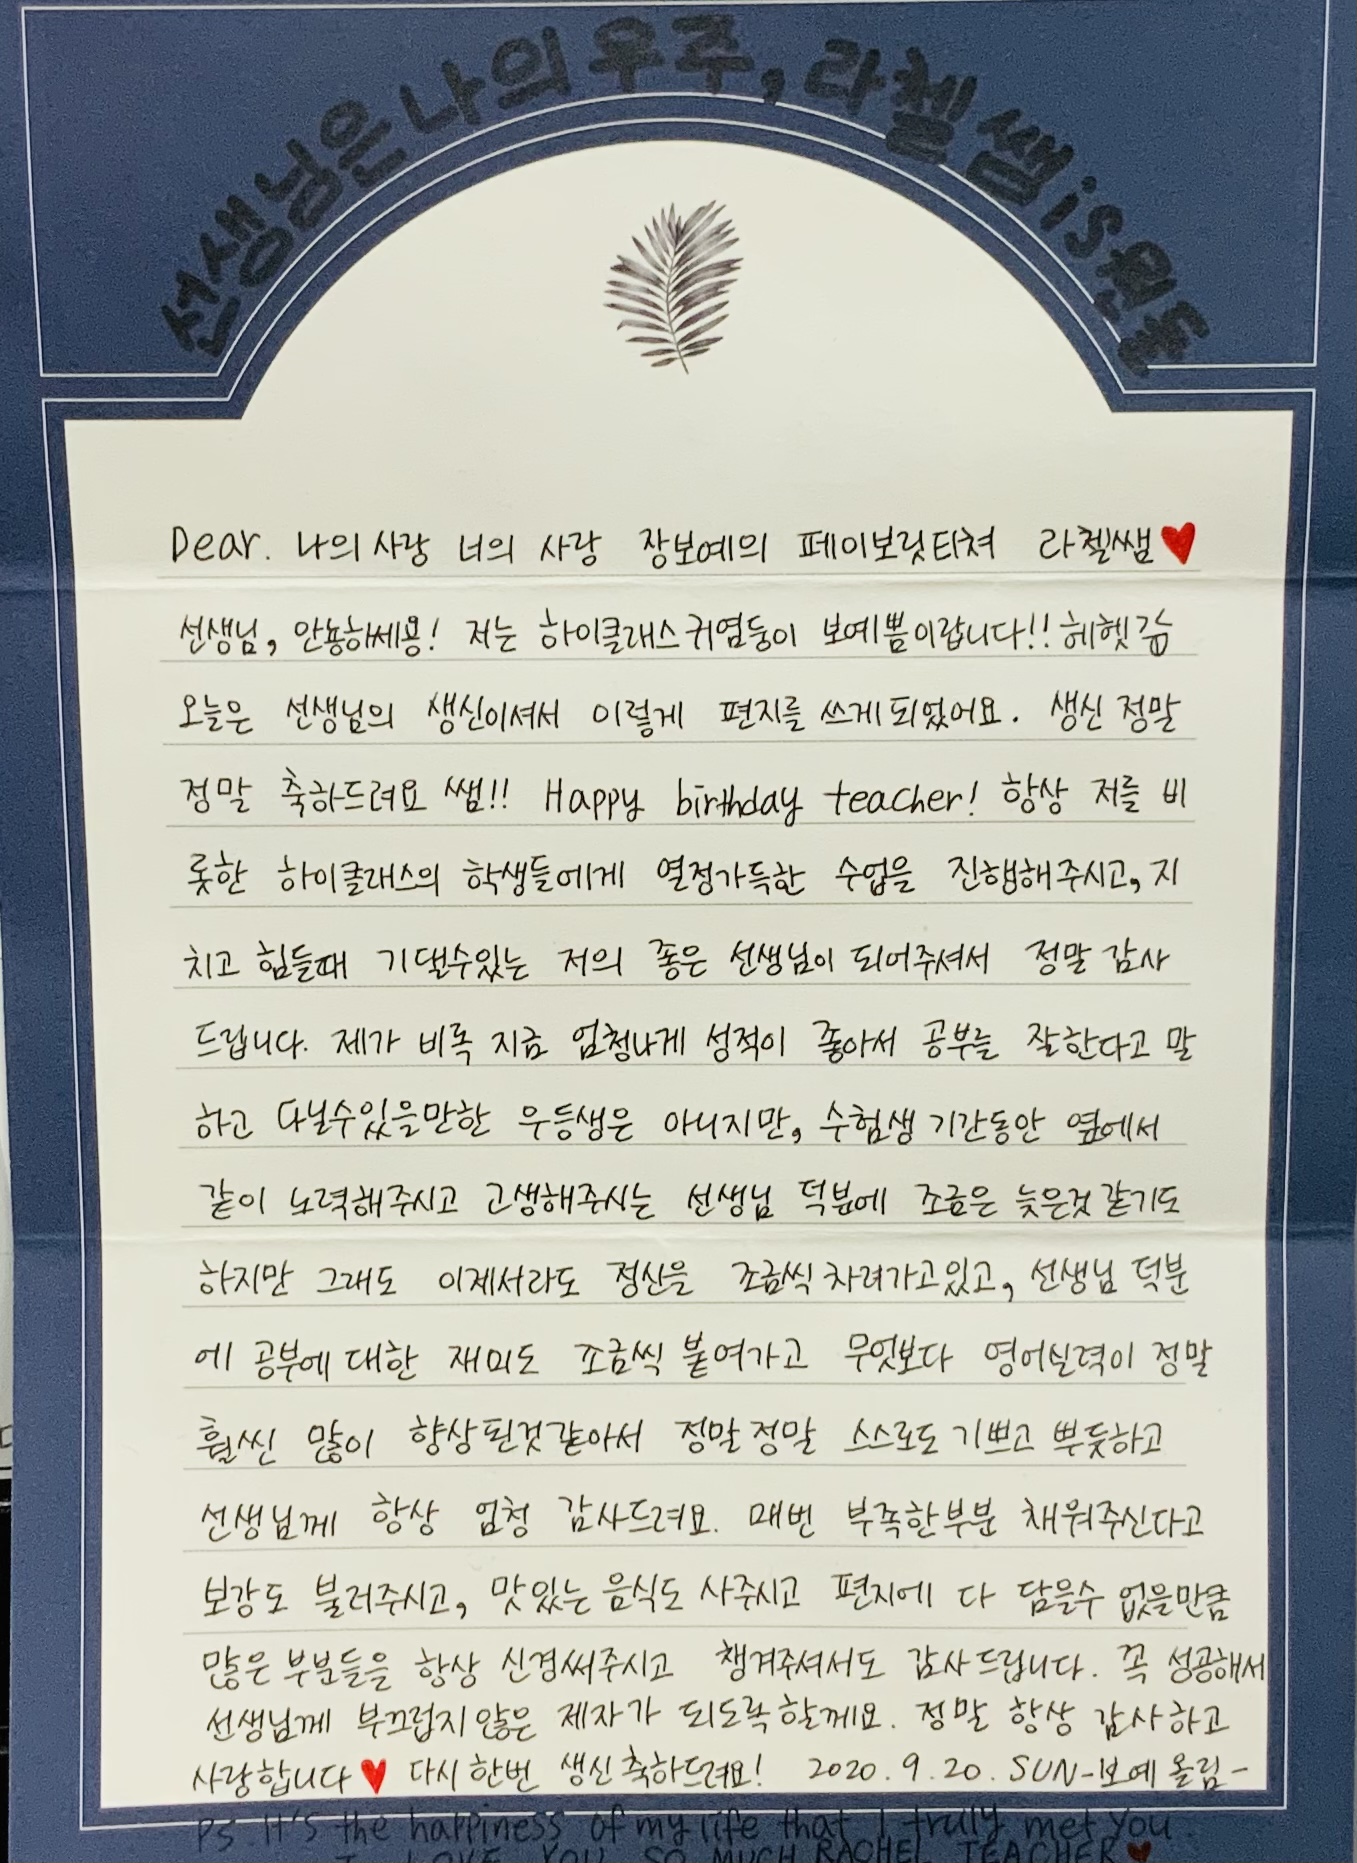 선생님은 나의 우주, 라첼쌤 is 뭔들
Dear. 나의 사랑 너의 사랑 장보예의 페이보릿티쳐 라첼쌤♥
선생님, 안뇽하세용! 저는 하이클래스 귀염둥이 보예쁨이랍니다!! 헤헷
오늘은 선생님의 생신이셔서 이렇게 편지를 쓰게 되었어요. 생신 정말
정말 축하드려요 쌤!! Happy birthday teacher! 항상 저를 비
롯한 하이클래스의 학생들에게 열정가득한 수업을 진행해주시고, 지
치고 힘들때 기댈수있는 저의 좋은 선생님이 되어주셔서 정말 감사
드립니다. 제가 비록 지금 엄청나게 성적이 좋아서 공부를 잘한다고 말
하고 다닐수있을만한 우등생은 아니지만, 수험생 기간동안 옆에서
같이 노력해주시고 고생해주시는 선생님 덕분에 조금은 늦은것 같기도
하지만 그래도 이제서라도 정신을 조금씩 차려가고있고, 선생님 덕분
에 공부에 대한 재미도 조금씩 붙여가고 무엇보다 영어실력이 정말
훨씬 많이 향상된것같아서 정말정말 스스로도 기쁘고 뿌듯하고
선생님께 항상 엄청 감사드려요. 매번 부족한부분 채워주신다고
보강도 불러주시고, 맛있는 음식도 사주시고 편지에 다 담을수 없을만큼
많은 부분들을 항상 신경써주시고 챙겨주셔서도 감사드립니다. 꼭 성공해서
선생님께 부끄럽지않은 제자가 되도록 할께요. 정말 항상 감사하고
사랑합니다♥ 다시한번 생신축하드려요! 2020.9.20. SUN-보예올림-
PS. It's the happiness of my life that I truly met you.
I LOVE YOU SO MUCH RACHEL TEACHER♥